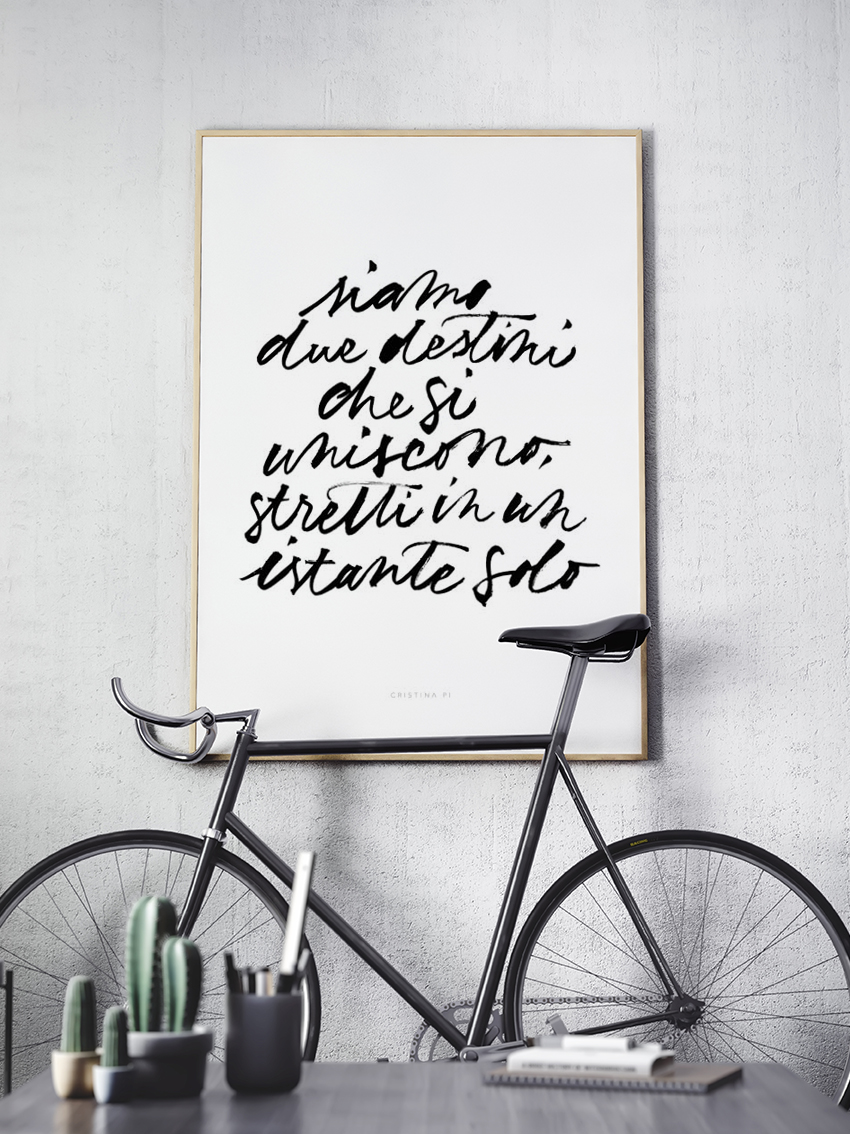 siamo
due destini
che si
uniscono,
stretti in un
istante solo
CRISTINA PI